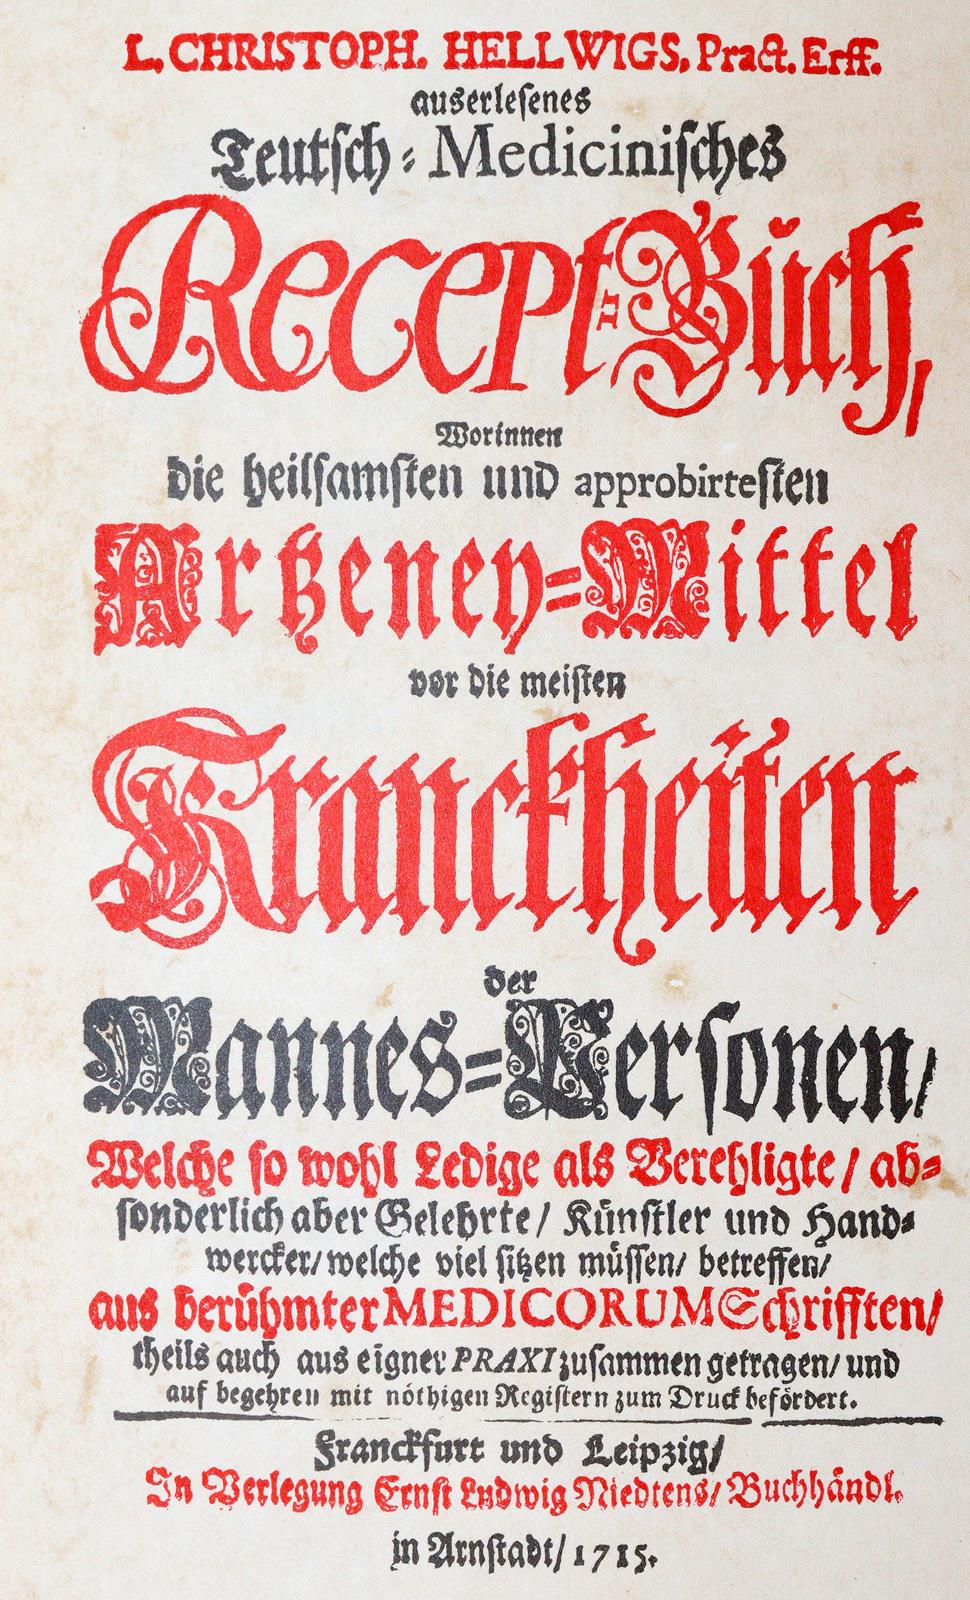 L. CHRISTOPH. HELLWIGS, Pract. Erff.
auserlesenes
Teutsch-Medicinisches
Recept-Buch,
Worinnen
die heilsamsten und approbirtesten
Artzeney-Mittel
vor die meisten
Kranckheiten
der
Mannes-Personen/
Welche so wohl Ledige als Verehligte / ab-
sonderlich aber Gelehrte / Künstler und Hand-
wercker/ welche viel sitzen müssen/ betreffen/
aus berühmter MEDICORUM Schrifften/
theils auch aus eigner PRAXI zusammen getragen/ und
auf begehren mit nöthigen Registern zum Druck befördert.
Franckfurt und Leipzig/
In Verlegung Ernst Ludwig Niedtens/ Buchhändl.
in Arnstadt/ 1715.